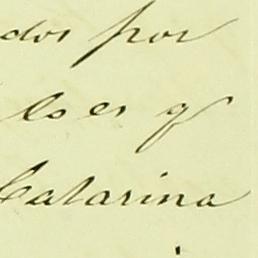 dos por
los es q
Catarina